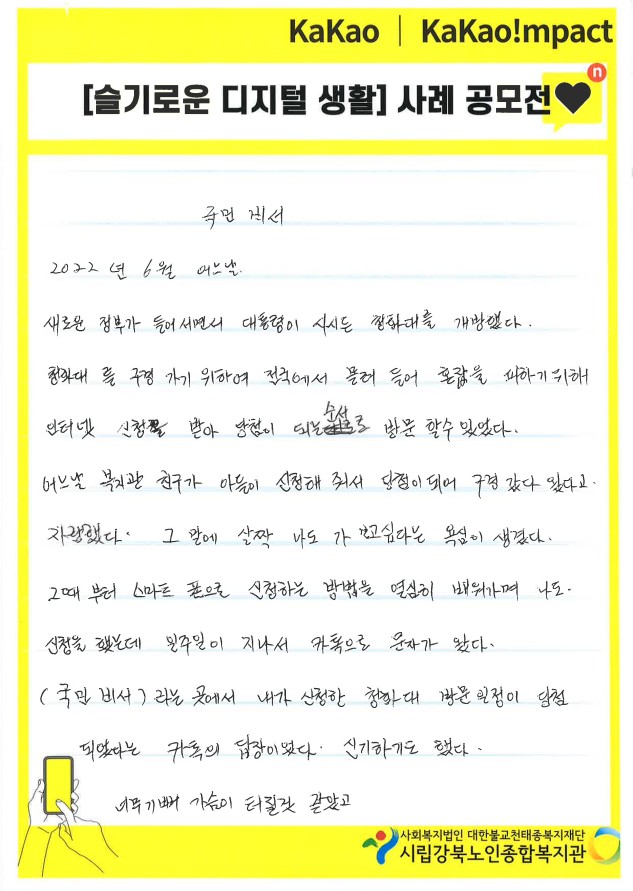 KaKao | KaKao!mpact
[슬기로운 디지털 생활] 사례 공모전
n
국민 비서
2022년 6월 어느날.
새로운 정부가 들어서면서 대통령이 사시는 청화대를 개방했다.
청화대 를 구경 가기 위하여 전국에서 몰려 들어 혼잡을 피하기 위해
인터넷 신청을 받아 당첨이 되는 순서로 방문 할수 있었다.
어느날 복지관 친구가 아들이 신청해 줘서 당첨이 되어 구경 갔다 왔다고.
자랑했다. 그 말에 살짝 나도 가 보고싶다는 욕심이 생겼다.
그때 부터 스마트 폰으로 신청하는 방법을 열심히 배워가며 나도.
신청을 했는데 일주일이 지나서 카톡으로 문자가 왔다.
(국민 비서) 라는 곳에서 내가 신청한 청화대 방문 일정이 당첨
되었다는 카톡의 답장이었다. 신기하기도 했다.
너무 기뻐 가슴이 터질것 같았고
사회복지법인 대한불교천태종복지재단
시립강북노인종합복지관